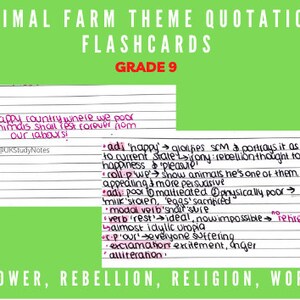 IMAL FARM THEME QUOTATIO
FLASHCARDS
GRADE 9
happy country where we poor
animals shall rest forever from
our labours!
@UKStudyNotes
• adj 'happy' → glorifies SCM & portrays it as
to current state → irony: rebellion thought to
happiness & 'pleasure'
• roll p 'we' → show animals he's one of them
appealing & more persuasive
• adj: poor ① maltreated ② physically poor →
milk 'stolen', 'eggs' sampled'
• modal verb 'shall'
• verb 'rest' → ideal, now impossible →
↳ almost idyllic utopia
r.p 'our' → everyone suffering
• exclamation: excitement, anger
• alliteration
OWER, REBELLION, RELIGION, WO